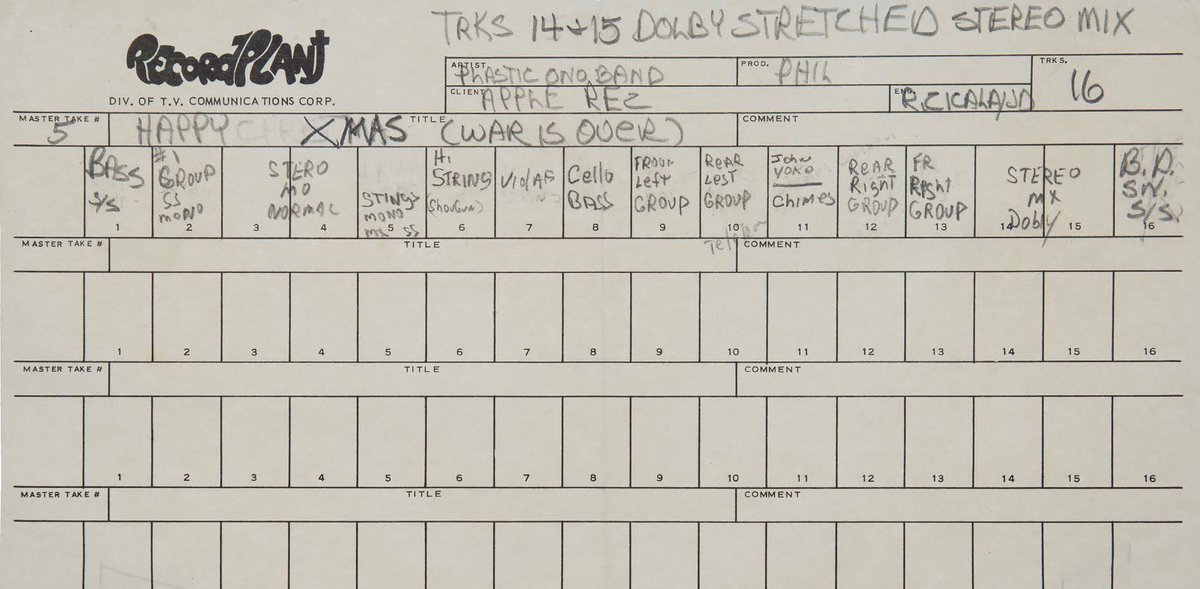 TRKS 14+15 DOLBY STRETCHED STEREO MIX
RECORD PLANT
DIV. OF T.V. COMMUNICATIONS CORP.
ARTIST PLASTIC ONO BAND PROD. PHIL TRKS. 16
CLIENT APPLE REC ENG R.CICALA/JD
MASTER TAKE # 5 TITLE HAPPY XMAS (WAR IS OVER) COMMENT
BASS S/S 1
#1 GROUP SS MONO 2
STERO MO NORMAL 3 4
STINGS MONO MX SS 5
Hi STRING (SHOTGUN) 6
7
Cello BASS 8
FROUN Left GROUP 9
REAR LEST GROUP 10
John YOKO Chimes 11
REAR Right GROUP 12
FR Right GROUP 13
STEREO MX Dobly 14 15
B.D. SN. S/S. 16
MASTER TAKE # TITLE COMMENT
1 2 3 4 5 6 7 8 9 10 11 12 13 14 15 16
MASTER TAKE # TITLE COMMENT
1 2 3 4 5 6 7 8 9 10 11 12 13 14 15 16
MASTER TAKE # TITLE COMMENT